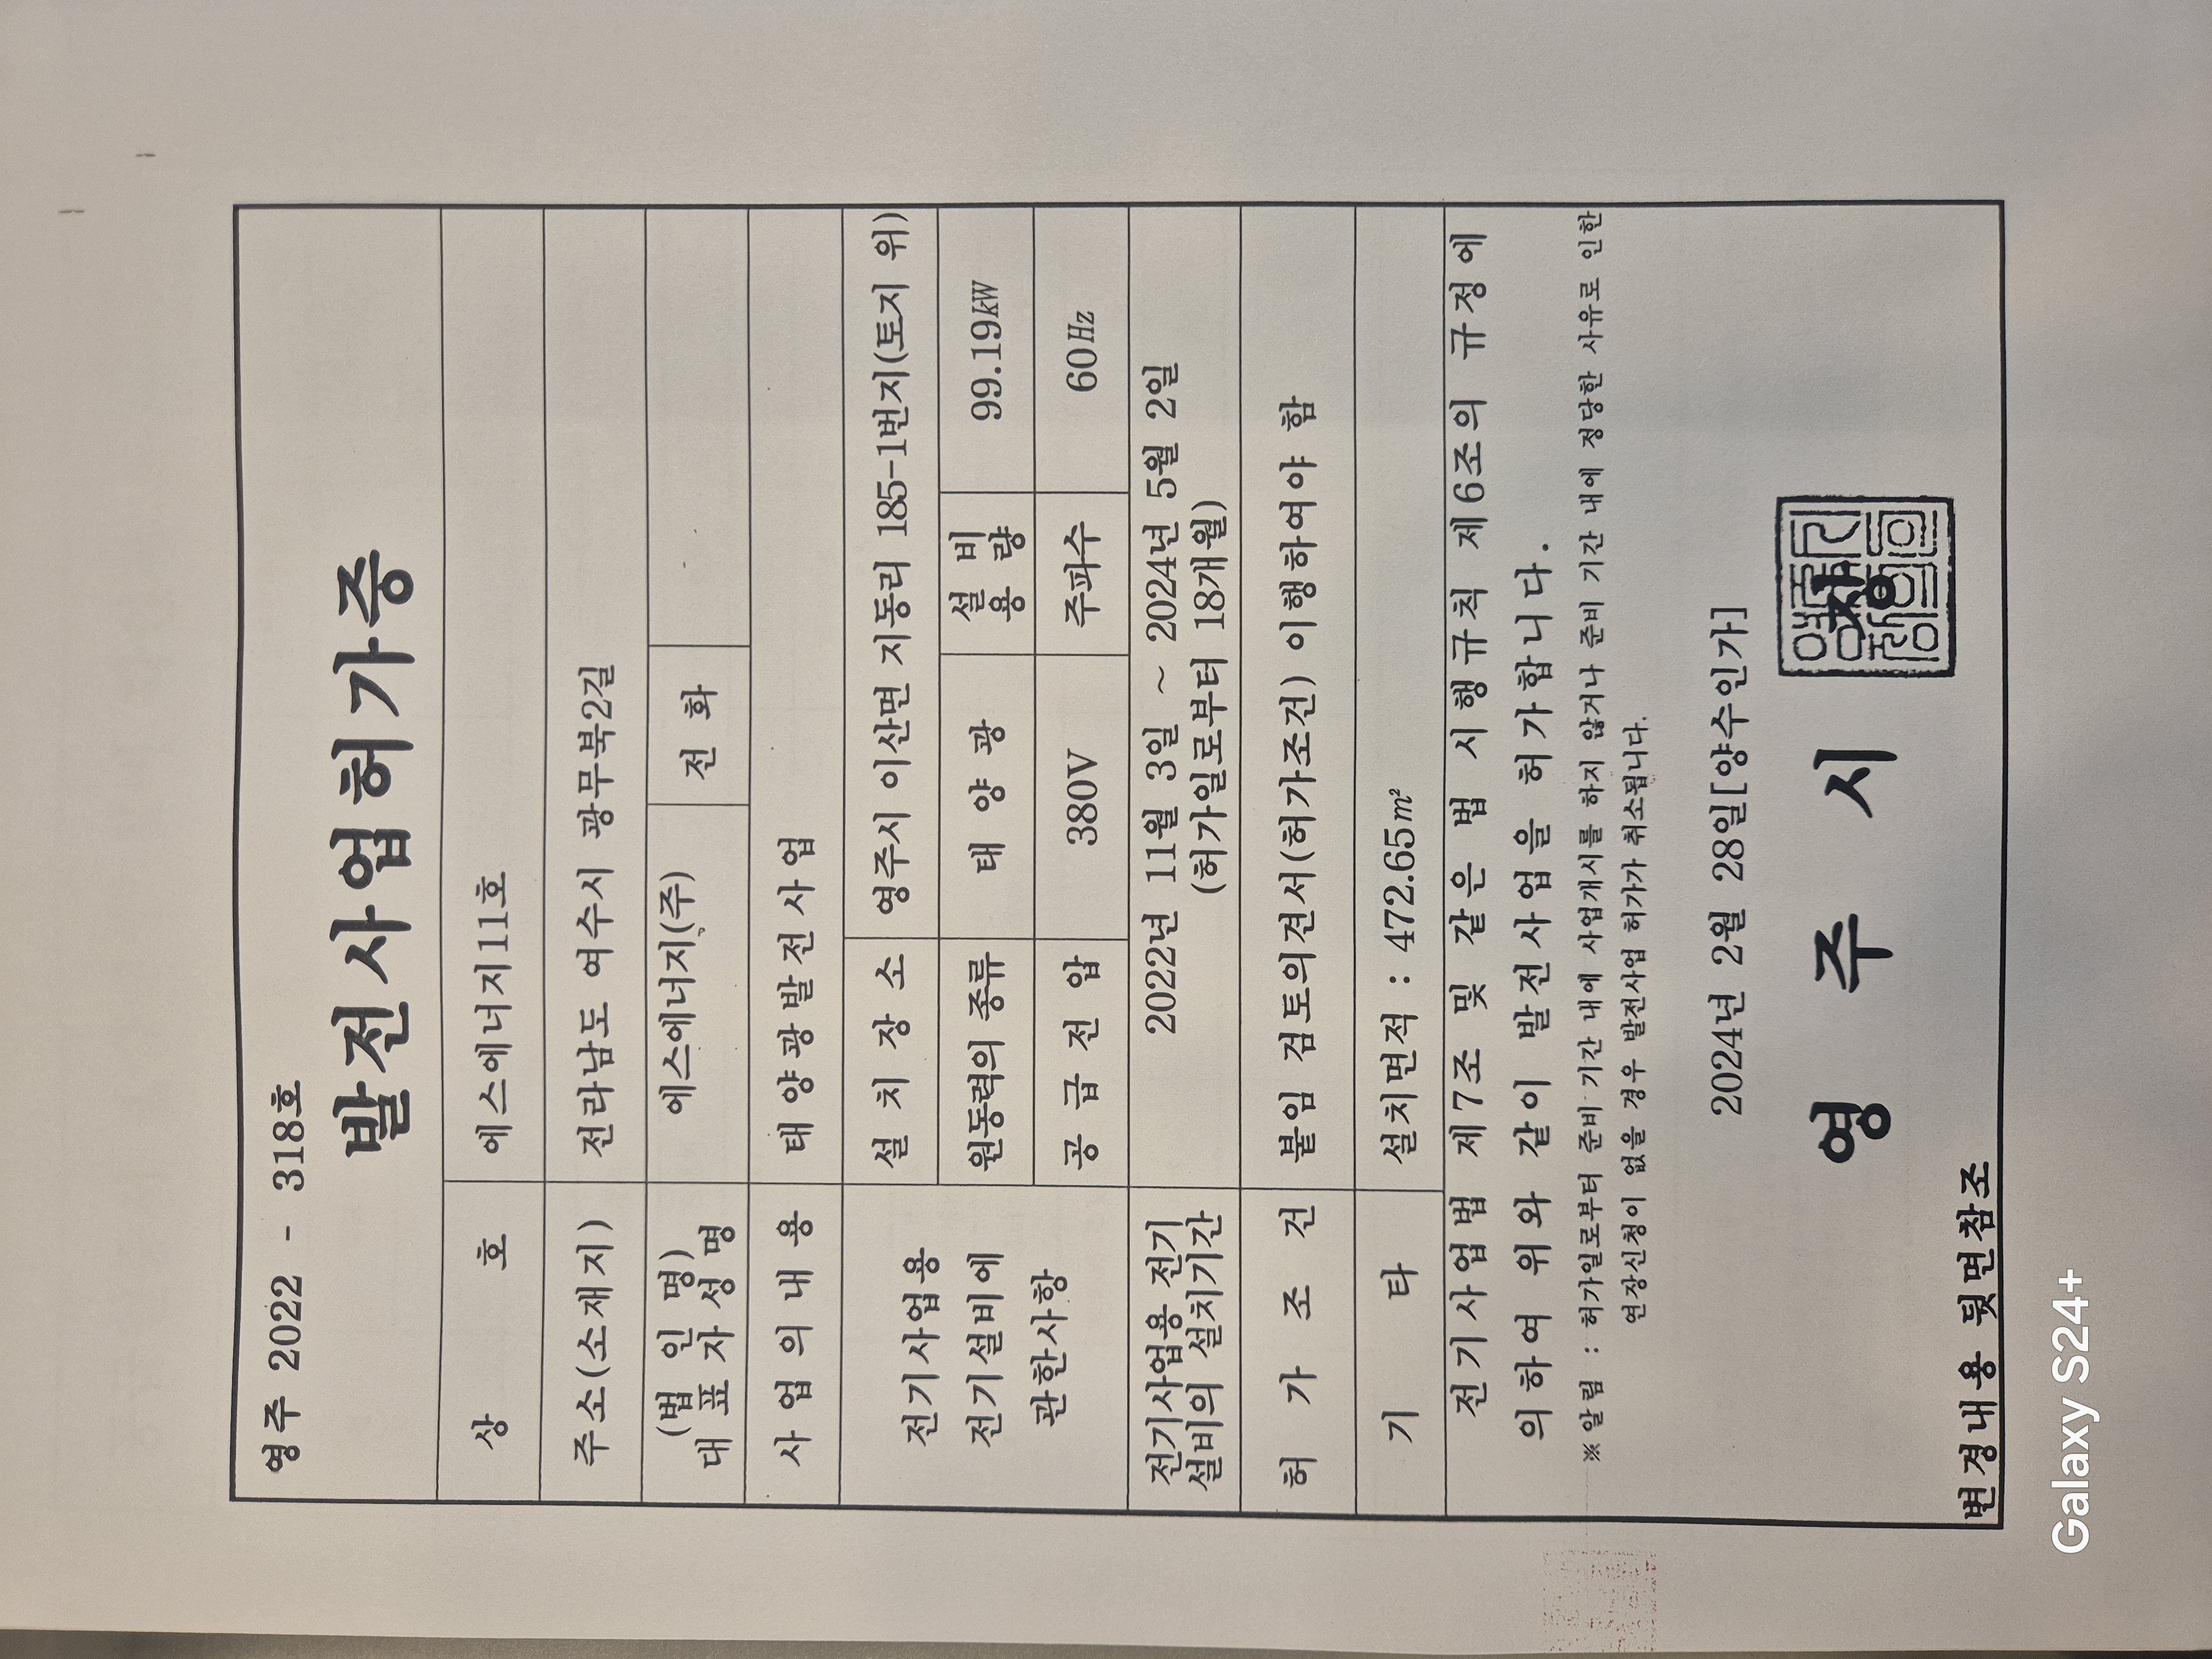 영주 2022 - 318호
발전사업허가증
상 호 에스에너지11호
주소(소재지) 전라남도 여수시 광무북2길
(법 인 명)
대 표 자 성 명 에스에너지(주) 전 화
사 업 의 내 용 태양광발전사업
전기사업용
전기설비에
관한사항
설 치 장 소 영주시 이산면 지동리 185-1번지(토지 위)
원동력의 종류 태 양 광 설 비 용 량 99.19kW
공 급 전 압 380V 주파수 60Hz
전기사업용 전기
설비의 설치기간
2022년 11월 3일 ~ 2024년 5월 2일
(허가일로부터 18개월)
허 가 조 건 붙임 검토의견서(허가조건) 이행하여야 함
기 타 설치면적 : 472.65㎡
전기사업법 제7조 및 같은 법 시행규칙 제6조의 규정에
의하여 위와 같이 발전사업을 허가합니다.
※ 알림 : 허가일로부터 준비 기간 내에 사업개시를 하지 않거나 준비 기간 내에 정당한 사유로 인한
연장신청이 없을 경우 발전사업 허가가 취소됩니다.
2024년 2월 28일[양수인가]
영 주 시 장
변경내용 뒷면참조
Galaxy S24+